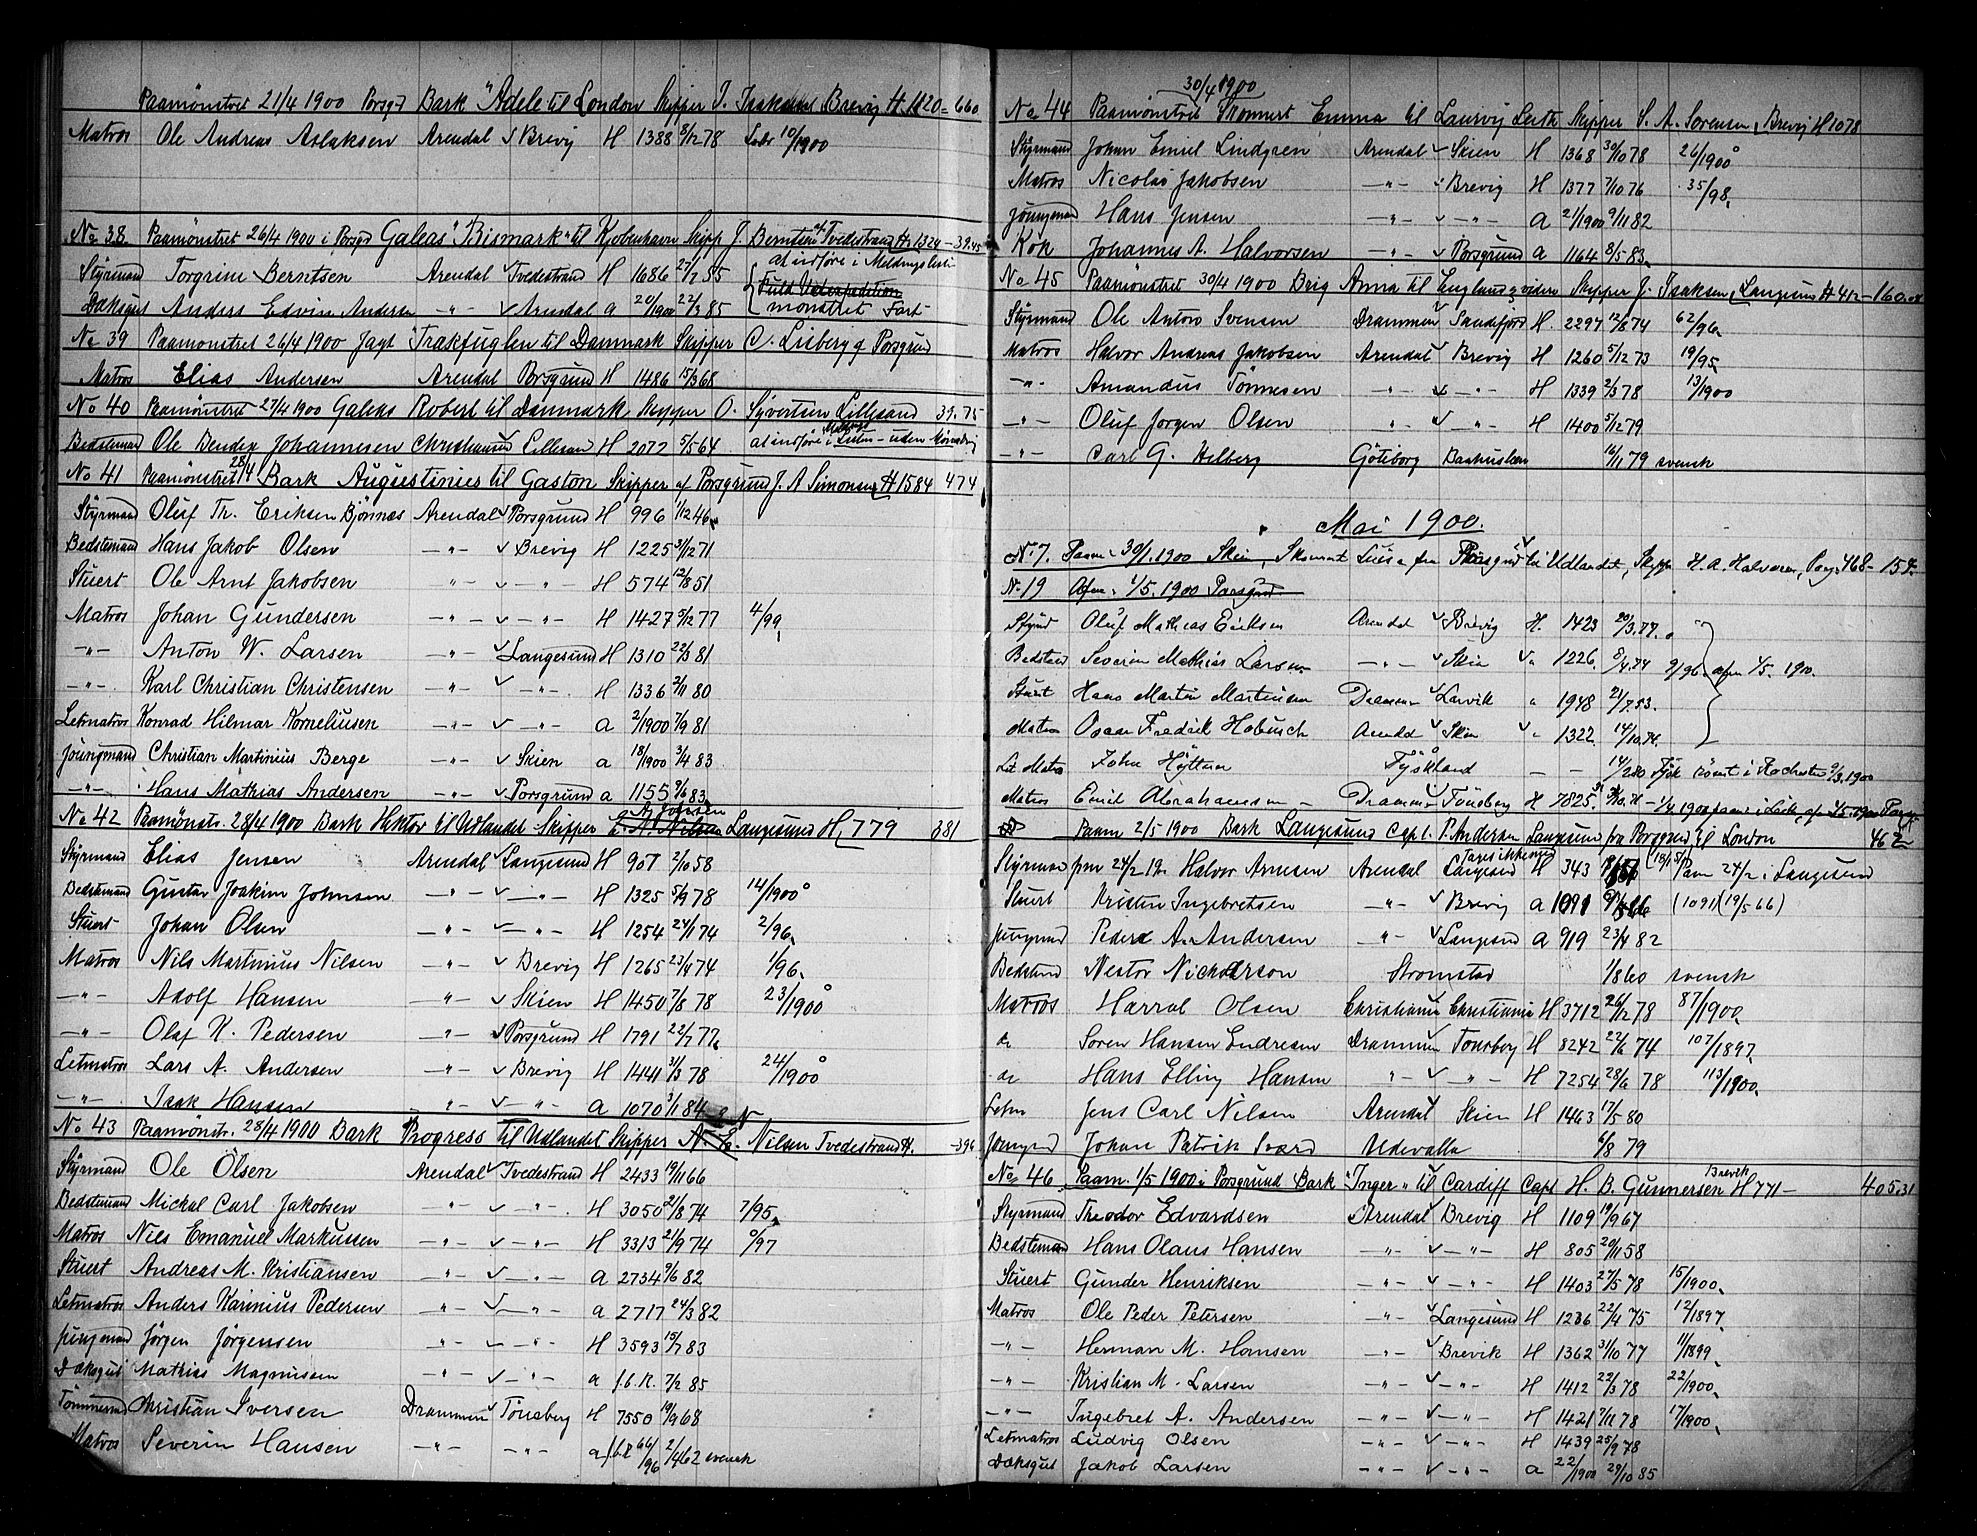 Paamönstret 21/4 1900 Porsg Bark "Adele til London Skipper J. Isaksen Brevig H. 1120 = 660
Matros Ole Andreas Aslaksen Arendal Brevig H 1388 8/12 78 10/1900
No 38 Paamönstret 26/4 1900 i Porsgd Galeas "Bismark" til Kjobenhavn Skipp J. Berntsen af Tvedestrand H. 1324 - 39.45
Styrmand Torgrim Berntsen Arendal Tvedestrand H 1686 27/2 85 at indföre i Meldingsliste
Dæksgut Anders Edvin Andersen -"- Arendal a 20/1900 22/3 85 mönstret Fart
No 39 Paamönstret 26/4 1900 Jagt "Trækfuglen til Danmark Skipper C. Lisberg af Porsgrund
Matros Elias Andersen Arendal Porsgrund H 1486 15/3 68
No 40 Paamönstret 27/4 1900 Galeas Robert til Danmark Skipper O. Syvertsen Lillesand 39.75
Bedstemand Ole Bendix Johannesen Christiansand Lillesand H 2077 5/5 64 at indföre i uden
No 41 Paamönstret 28/4 Bark Augustinius til Gaston Skipper af Porsgrund J. A Simonsen H 1584 474
Styrmand Oluf Th. Eriksen Bjönnes Arendal Porsgrund H 996 1/12 46
Bedstemand Hans Jakob Olsen -"- Brevig H 1225 3/12 71
Stuert Ole Arnt Jakobsen -"- -"- H 574 12/8 51
Matros Johan Gundersen -"- -"- H 1427 5/12 77 4/99
-"- Anton W. Larsen -"- Langesund H 1310 22/3 81
-"- Karl Christian Christensen -"- -"- H 1336 2/11 80
Letmatros Konrad Hilmar Korneliusen -"- -"- a 2/1900 7/9 81
Joungmand Christian Martinius Berge -"- Skien a 18/1900 3/4 83
-"- Hans Mathias Andersen -"- Porsgrund a 1155 9/6 83
No 42 Paamönstr. 28/4 1900 Bark Hektor til Udlandet Skipper Langesund H. 779 381
Styrmand Elias Jensen Arendal Langesund H 907 2/10 58
Bedstemand Gustav Joakim Johnsen -"- -"- H 1325 5/9 78 14/1900
Stuert Johan Olsen -"- -"- H 1254 24/1 74 2/96
Matros Nils Martinius Nilsen -"- Brevig H 1265 23/4 74 1/96
-"- Adolf Hansen -"- Skien H 1450 7/8 78 23/1900
-"- Olaf K. Pedersen -"- Porsgrund H 1791 22/7 77
Letmatros Lars A. Andersen -"- Brevig H 1441 3/3 78 24/1900
-"- Isak Hansen -"- -"- a 1070 3/1 84
No 43 Paamönstr. 28/4 1900 Bark Progress til Udlandet Skipper Nilsen Tvedestrand H. -396
Styrmand Ole Olsen Arendal Tvedestrand H 2433 19/11 66
Bedstemand Mickal Carl Jakobsen -"- -"- H 3050 21/8 74 7/95
Matros Nils Emanuel Markussen -"- -"- H 3313 21/9 74 9/97
Stuert Andreas M. Kristiansen -"- -"- a 2734 9/6 82
Letmatros Anders Karinius Pedersen -"- -"- a 2717 24/3 82
Jungmand Jörgen Jörgensen -"- -"- H 3593 15/7 83
Dæksgut Mathias Magnusen -"- -"- a f.b.R. 7/2 85
Tömmermd Kristian Iversen Drammen Tönsberg H 7550 19/9 68
Matros Severin Hansen -"- -"- a 66/96 2/4 62 svensk
30/4 1900
No 44 Paamönstret Skonnert Emma til Laurvig Leith Skipper S. A. Sorensen, Brevig H 1078
Styrmand Johan Emil Lindgren Arendal Skien H 1368 30/10 78 26/1900
Matros Nicolai Jakobsen -"- Brevig H 1377 7/10 76 35/98
Joungmand Hans Jensen -"- -"- a 21/1900 9/11 82
Kok Johannes A. Halvorsen -"- Porsgrund a 1164 8/5 83
No 45 Paamönstret 30/4 1900 Brig Anna til England & videre Skipper J. Isaksen, Langesund H 412 - 160
Styrmand Ole Anton Svensen Drammen Sandefjord H. 2297 12/8 74 62/96
Matros Halvor Andreas Jakobsen Arendal Brevig H 1260 5/12 73 19/95
-"- Amandus Tönnesen -"- -"- H 1339 2/3 78 13/1900
-"- Oluf Jorgen Olsen -"- -"- H 1400 5/12 79
-"- Carl G. Hilberg Göteborg Baahuslen 16/11 79 svensk
Mai 1900.
No 7. Paam. 30/1. 1900 Skien, Skonnert fra Porsgrund til Udlandet, Skipper H. A. Halvorsen, Porsg. 468 - 157
No 19 Afm. 1/5. 1900 Porsgrund
Styrmd Oluf Mathias Eriksen Arendal Brevig H. 1423 20/3.77.
Bedstmd Severin Mathias Larsen -"- Skien " 1226. 8/4.74 9/96. afm 1/5. 1900.
Stuert Hans Martin Martinsen Drammen Larvik " 1948 21/7 53.
Matros Oscar Fredrik Hobusch Arendal Skien " 1322. 14/10.74.
Let Matr John Tyskland - - 14/2 80 Tysk römt i Rochester 9/3.1900
Matros Emil Abrahamsen - Drammen Tönsberg H 7825.
Paam 2/5 1900 Bark Langesund Capt. P. Andersen Langesund fra Porsgrund til London 462
Styrmand pm 24/2 19. Halvor Arnesen Arendal Langesund H 343 Paam 24/2 i Langesund
Stuert Kristen Ingebretsen -"- Brevig a 1091 (1091) (19/5 66)
Jungmd Peder A. Andersen -"- Langesund a 919 23/4 82
Bedstmd Nestor Nickolrson Stromstad 1/8 60 svensk
Matros Harral Olsen Christiania Christiania H 3712 26/12 78 87/1900
do Soren Hansen Endresen Drammen Tonsberg H 8242 22/6 74 107/1897
do Hans Elling Hansen -"- -"- H 7254 28/6 78 113/1900
Letm Jens Carl Nilsen Arendal Skien H 1463 17/5 80
Joungmd Johan Patrik Svard Udevalla 6/8 79
No 46 Paam. 1/5 1900 i Porsgrund Bark "Inger" til Cardiff Capt H. B. Gunnersen Brevik H 771 - 405.31
Styrmand Theodor Edvardsen Arendal Brevig H 1109 19/9 67
Bedstemand Hans Olaus Hansen -"- -"- H 805 20/11 58
Stuert Gunder Henriksen -"- -"- H 1403 27/5 78 15/1900
Matros Ole Peder Petersen -"- Langesund H 1236 22/4 75 12/1897
-"- Herman M. Hansen -"- Brevik H 1362 31/10 77 11/1899
-"- Kristian M. Larsen -"- -"- H 1412 22/3 78 22/1900
-"- Ingebret A. Andersen -"- -"- H 1421 7/11 78 17/1900
Letmatros Ludvig Olsen -"- -"- H 1439 25/9 78
Dæksgut Jakob Larsen -"- -"- a 22/1900 29/10 85